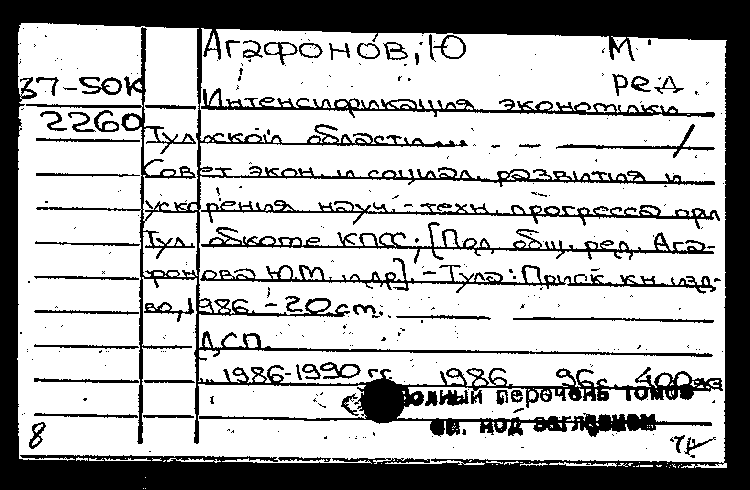 Агафонов, Ю М.
ред.
37-50К Интенсификация экономики
2260 Тульской области... - — /
Совет экон. и социал. развития и
ускорения науч.-техн. прогресса при
Тул. обкоме КПСС; [Под общ. ред. Ага-
фонова Ю.М. и др]. - Тула: Приок. кн. изд-
во, 1986. - 20 см.
ДСП.
... 1986-1990 гг. 1986. 96с. 400 экз
Полный перечень томов
см. под заглавием
8